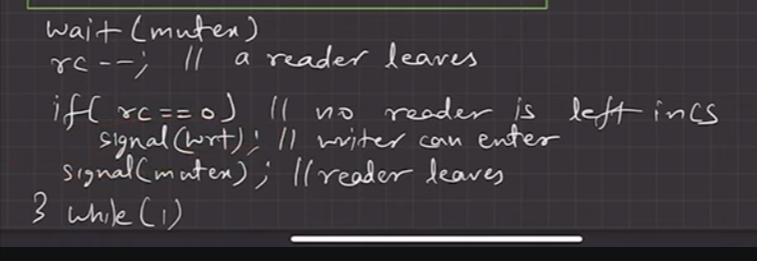 wait(mutex)
rc--; // a reader leaves
if( rc==0) // no reader is left in CS
signal(wrt); // writer can enter
signal(mutex); // reader leaves
} while(1)